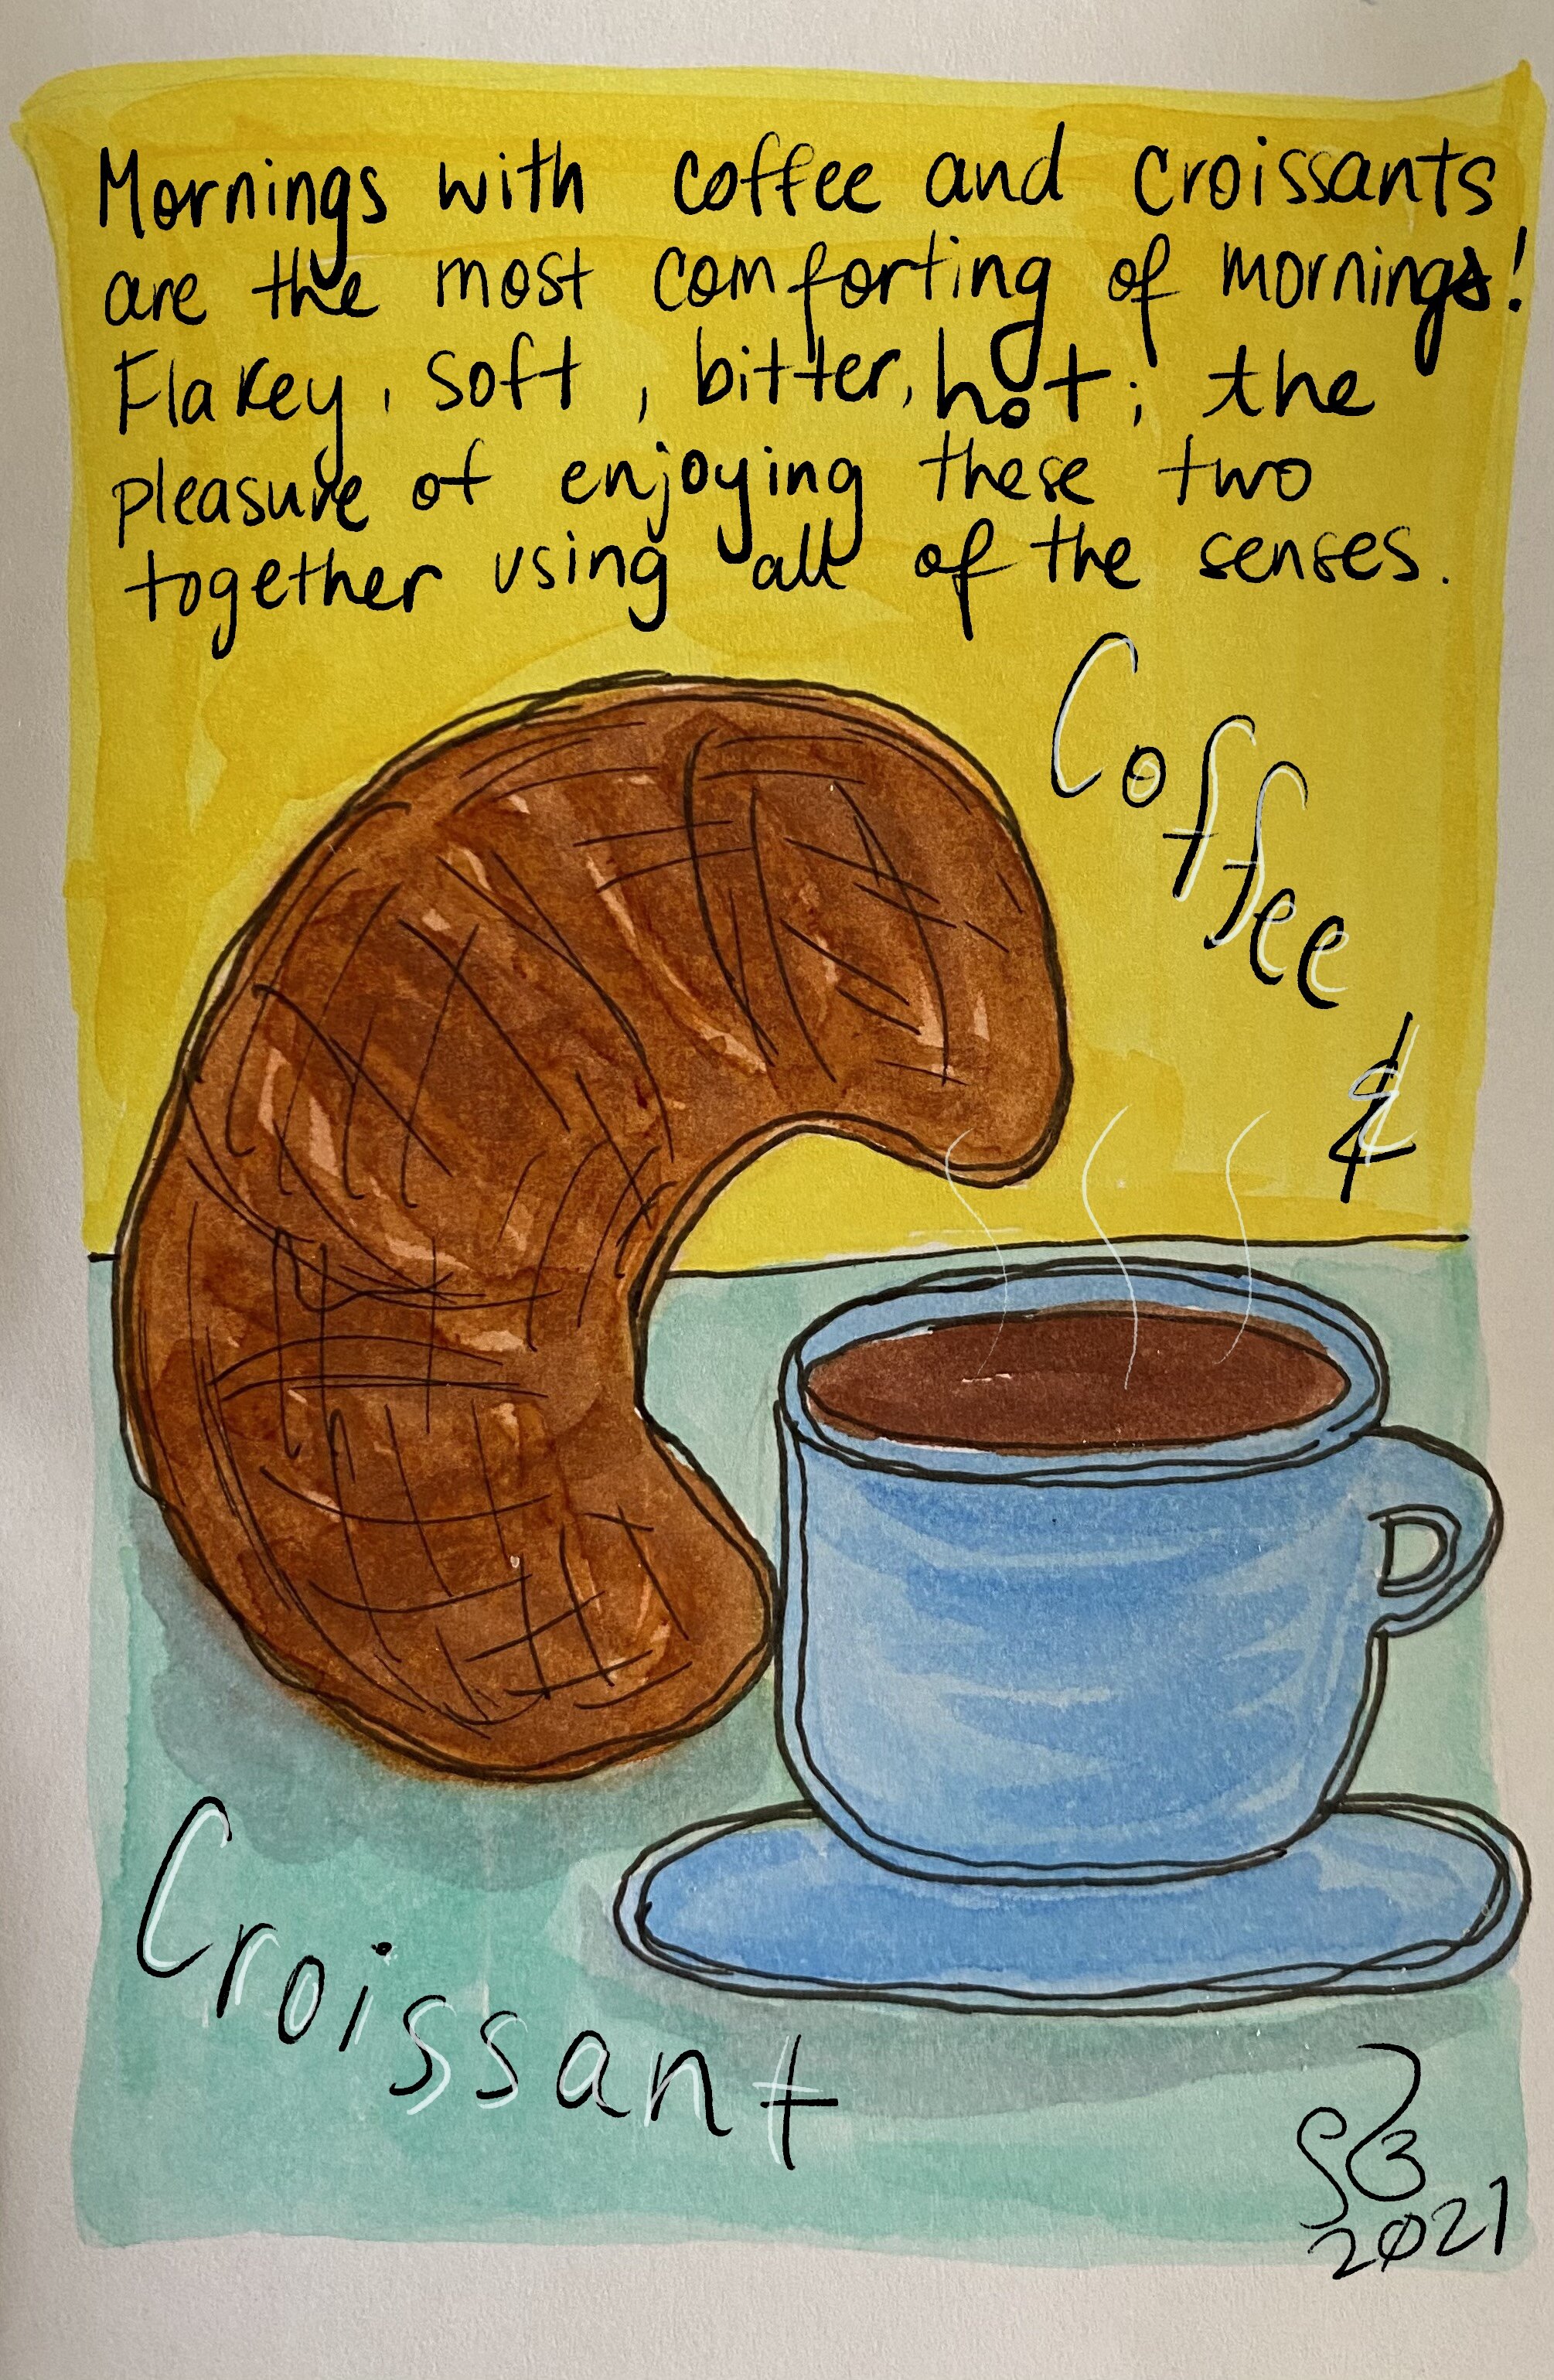 Mornings with coffee and croissants
are the most comforting of mornings!
Flakey, soft, bitter, hot; the
pleasure of enjoying these two
together using all of the senses.
Coffee
&
Croissant
2021